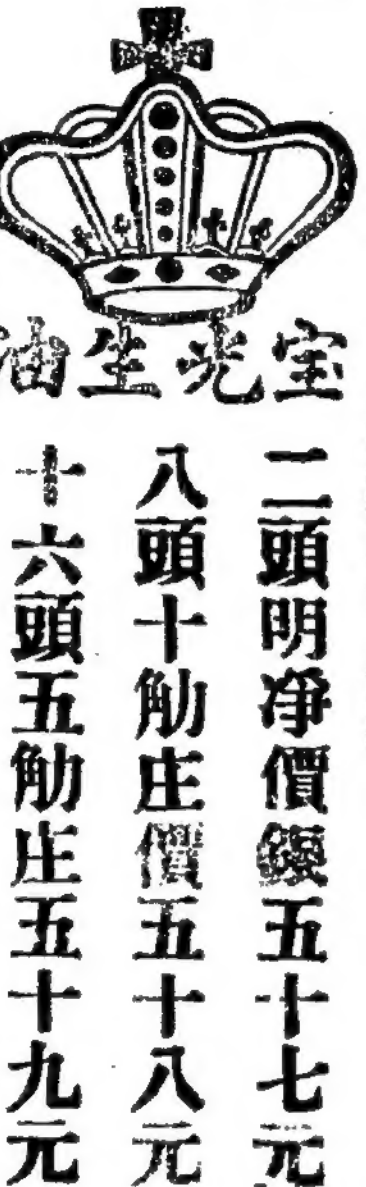 宝光生油
二頭明净價銀五十七元
八頭十觔庄價五十八元
十六頭五觔庄五十九元